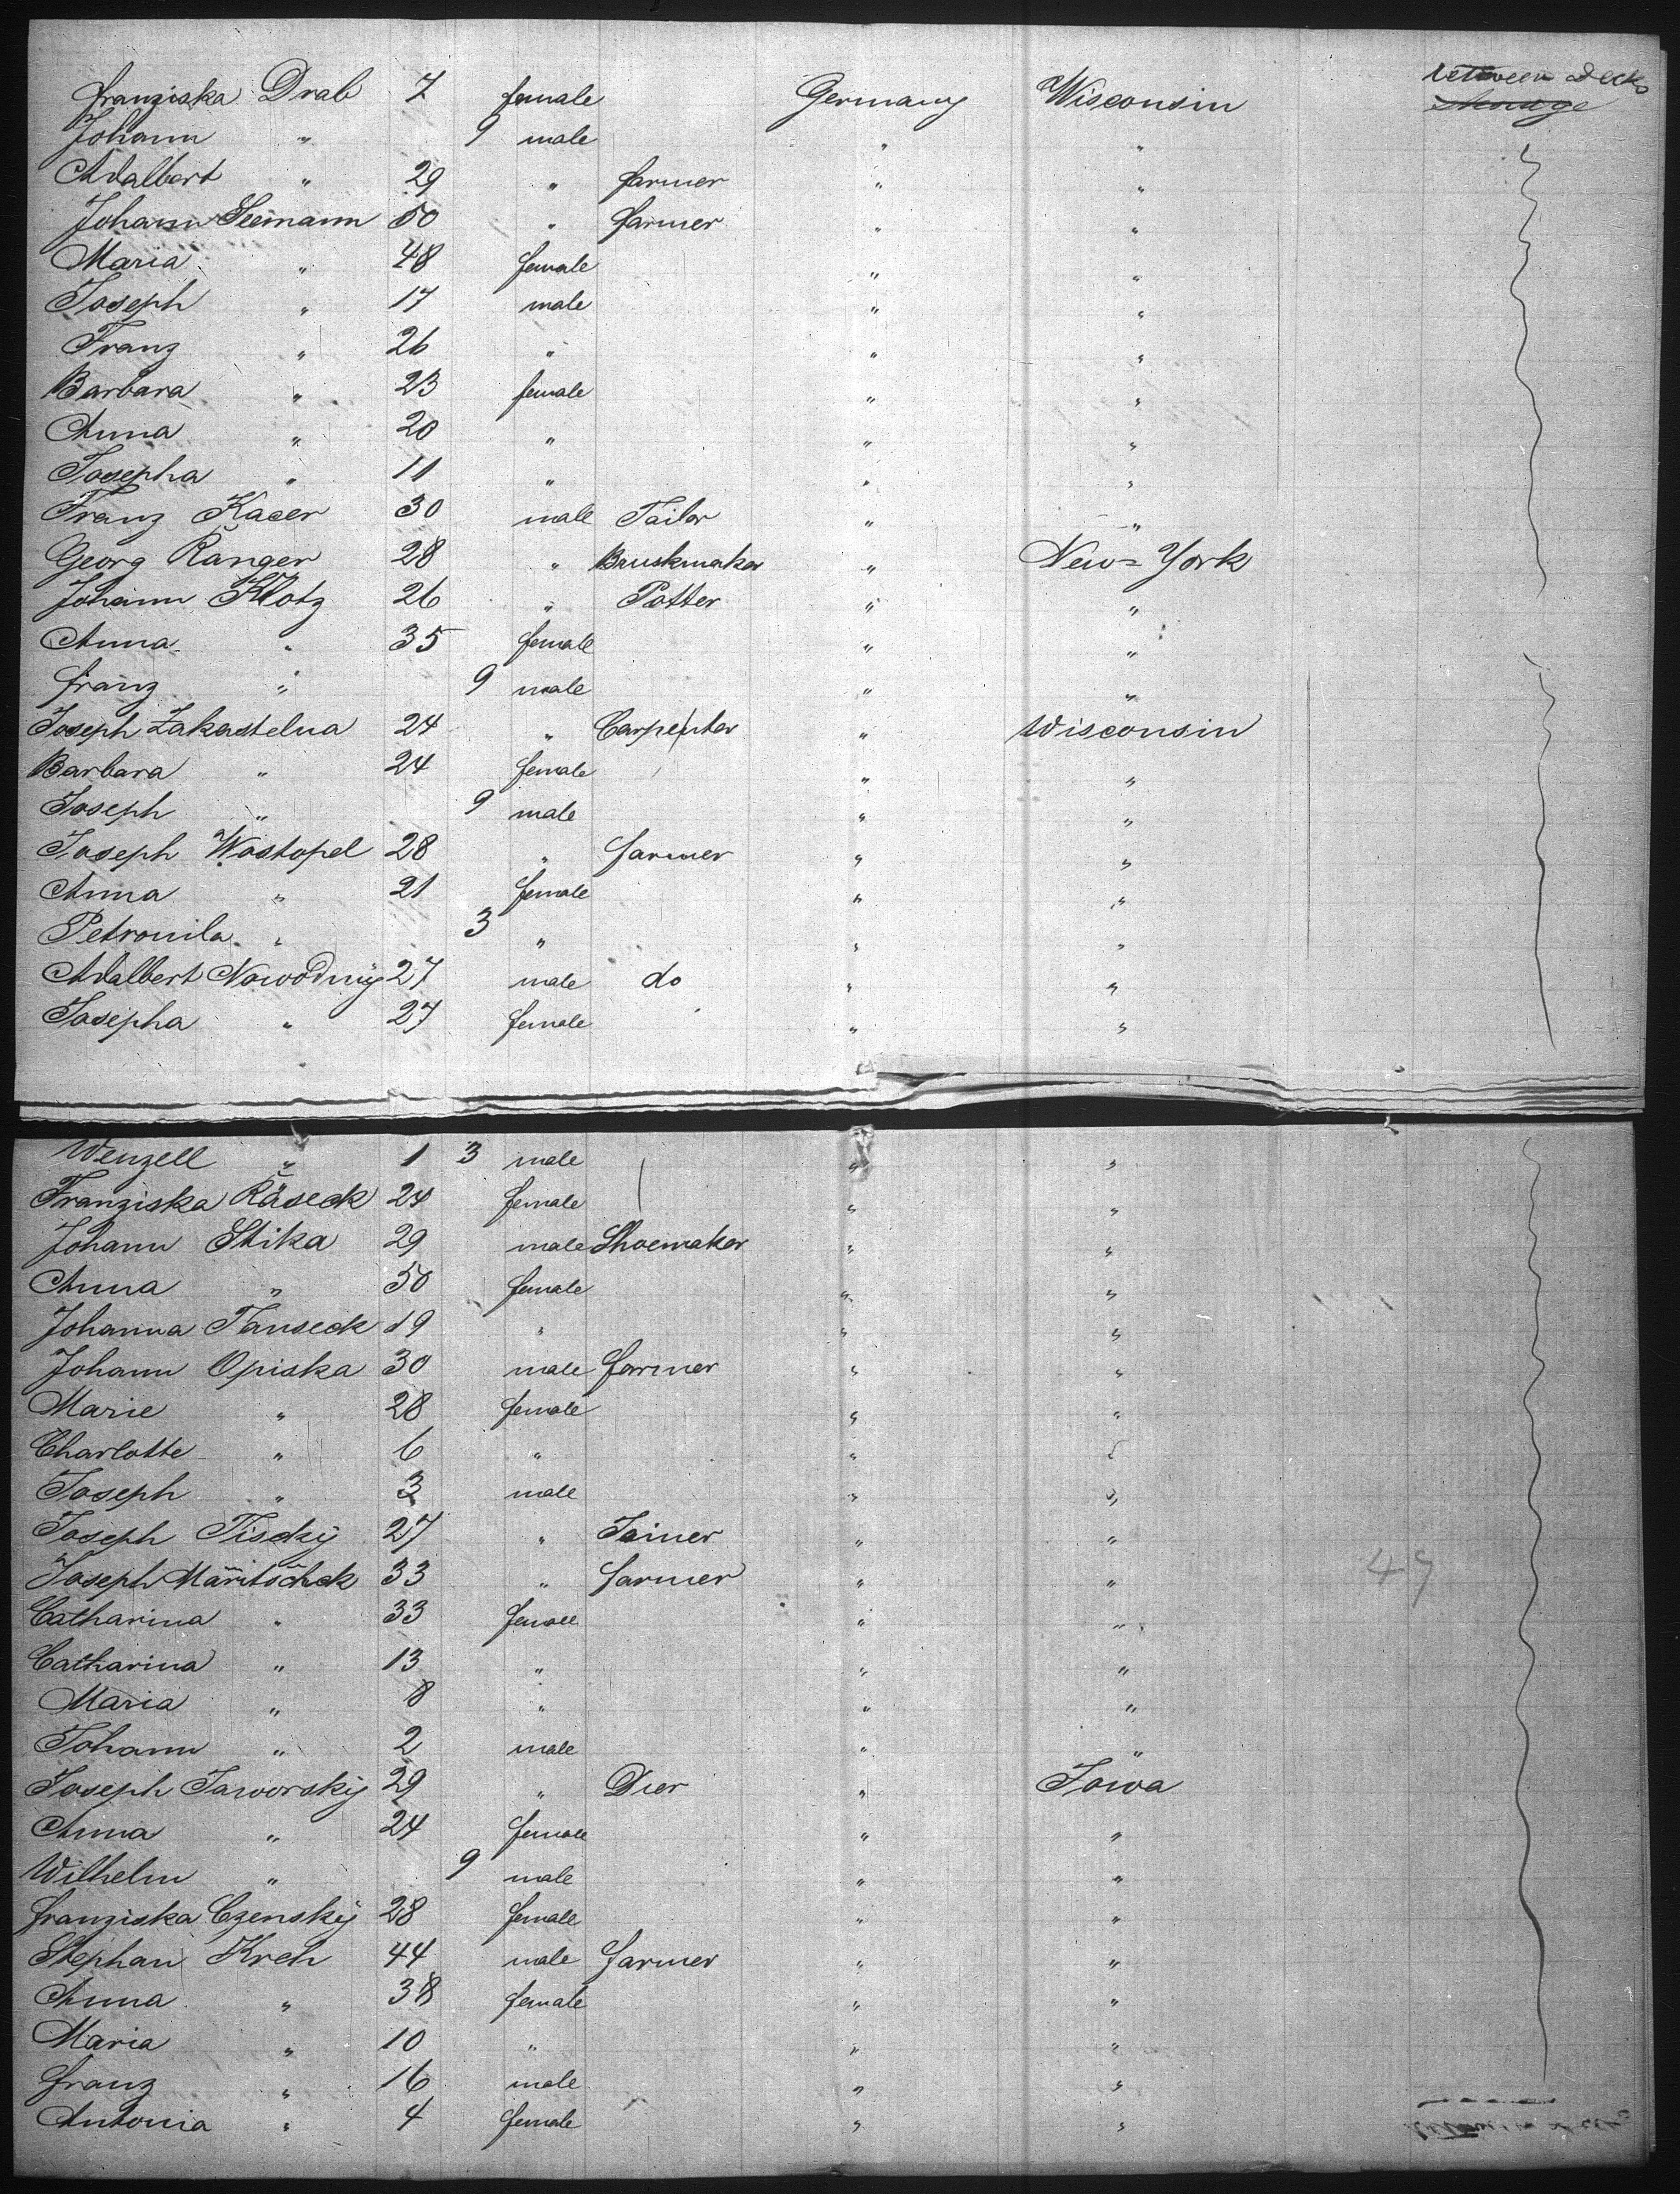 between decks
Franziska Drab 7 female Germany Wisconsin
Johann " 9 male " "
Adalbert " 29 " farmer " "
Johann Seemann 50 " farmer " "
Maria " 48 female " "
Joseph " 17 male " "
Franz " 26 " " "
Barbara " 23 female " "
Anna " 20 " " "
Josepha " 11 " " "
Franz Kacer 30 male Tailor " "
Georg Ranger 28 " " New=York
Johann Klotz 26 " Potter " "
Anna " 35 female " "
Franz " 9 male " "
Joseph Zakastelna 24 " Carpenter " Wisconsin
Barbara " 24 female " "
Joseph " 9 male " "
Joseph Wostopel 28 " farmer " "
Anna " 21 female " "
Petronila " 3 " " "
Adalbert Nowodnÿ 27 male do " "
Josepha " 27 female " "
Wenzell " 1 3 male " "
Franziska Räseck 24 female " "
Johann Stika 29 male Shoemaker " "
Anna " 50 female " "
Johanna Janseck 19 " " "
Johann Opiska 30 male farmer " "
Marie " 28 female " "
Charlotte " 6 " " "
Joseph " 3 male " "
Joseph Tisckÿ 27 " Joiner " "
Joseph 33 " farmer " "
Catharina " 33 female " "
Catharina " 13 " " "
Maria " 8 " " "
Johann " 2 male " "
Joseph Jaworskÿ 29 " Dier " Iowa
Anna " 24 female " "
Wilhelm " 9 male " "
Franziska Czenskÿ 28 female " "
Stephan Kreh 44 male farmer " "
Anna " 38 female " "
Maria " 10 " " "
Franz " 16 male " "
Antonia " 4 female " "
49